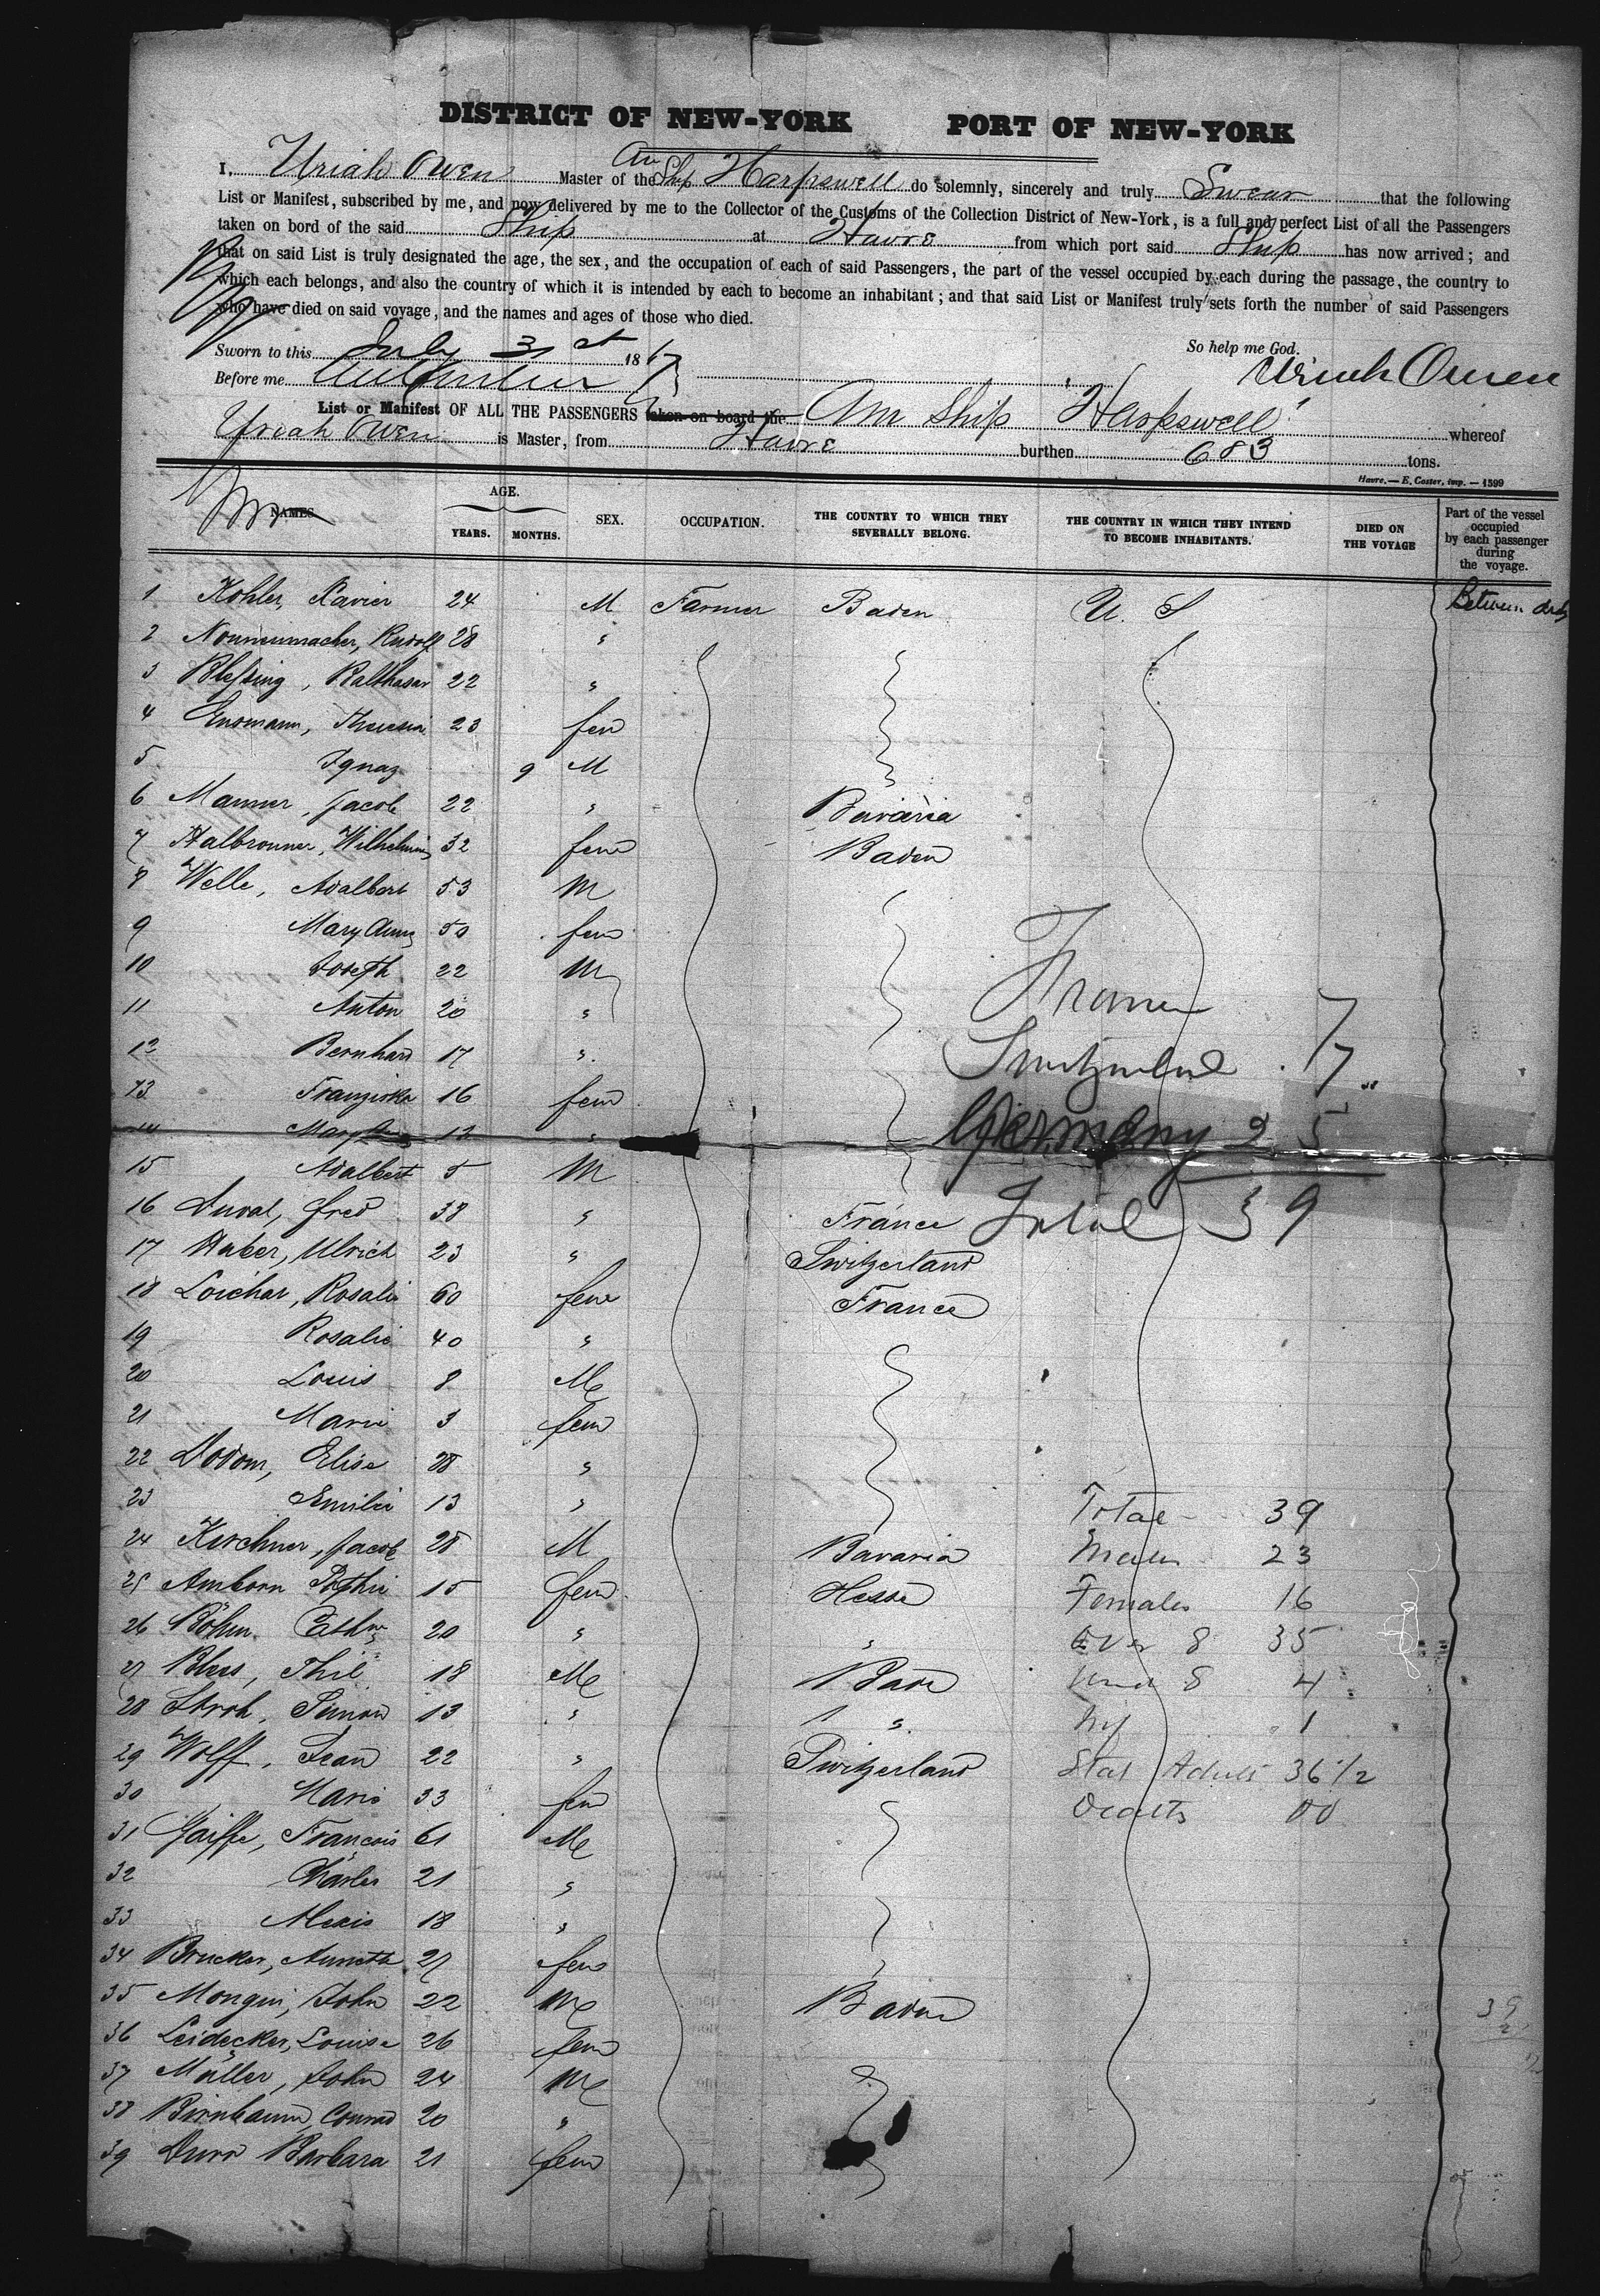 DISTRICT OF NEW-YORK PORT OF NEW-YORK
I, Uriah Owen Master of the Am Ship Harpswell do solemnly, sincerely and truly Swear that the following
List or Manifest, subscribed by me, and now delivered by me to the Collector of the Customs of the Collection District of New-York, is a full and perfect List of all the Passengers
taken on bord of the said Ship at Havre from which port said Ship has now arrived; and
that on said List is truly designated the age, the sex, and the occupation of each of said Passengers, the part of the vessel occupied by each during the passage, the country to
which each belongs, and also the country of which it is intended by each to become an inhabitant; and that said List or Manifest truly sets forth the number of said Passengers
who have died on said voyage, and the names and ages of those who died.
So help me God.
Sworn to this July 31st 1867
Uriah Owen
Before me
List or Manifest OF ALL THE PASSENGERS taken on board the Am Ship Harpswell whereof
Uriah Owen is Master, from Havre burthen 683 tons.
Havre. — E. Coster, imp. — 1599
NAMES. AGE. YEARS. MONTHS. SEX. OCCUPATION. THE COUNTRY TO WHICH THEY SEVERALLY BELONG. THE COUNTRY IN WHICH THEY INTEND TO BECOME INHABITANTS. DIED ON THE VOYAGE Part of the vessel occupied by each passenger during the voyage.
1 Kohler, Xavier 24 M Farmer Baden U. S Between decks
2 Nounenmacher, Rudolf 28 "
3 Blessing, Balthasar 22 "
4 Ensmann, Theresia 23 fem
5 Ignaz 9 M
6 Manner, Jacob 22 " Bavaria
7 Halbronner, Wilhelmina 32 fem Baden
8 Welle, Adalbert 53 M
9 Mary Anna 50 fem
10 Joseph 22 M
11 Anton 20 " France 7
12 Bernhard 17 " Switzerland 7
13 Franziska 16 fem
14 12 " Germany 25
15 Adalbert 5 M
16 Duval, Fred 38 " France Total 39
17 Huber, Ulrich 23 " Switzerland
18 Loichar, Rosalie 60 fem France
19 Rosalie 40 "
20 Louis 8 M
21 Marie 3 fem
22 Dodom, Elise 28 "
23 Emilie 13 " Total 39
24 Kirchner, Jacob 28 M Bavaria Males 23
25 Amborn Sophie 15 fem Hesse Females 16
26 Böhm 20 " " Over 8 35
27 Phil 18 M Bade Und 8 4
28 Stroh, Simon 13 " " Inf 1
29 Wolff, Jean 22 " Switzerland Stat Adults 36 1/2
30 Marie 33 fem Deaths 00
31 Gaiffe, François 61 M
32 Charles 21 "
33 Alexis 18 "
34 Brucker, Annette 27 fem
35 Mongin, John 22 M Baden
36 Leidecker, Louise 26 fem
37 Müller, John 24 M
38 Birnbaum, Conrad 20 "
39 Durr Barbara 21 fem